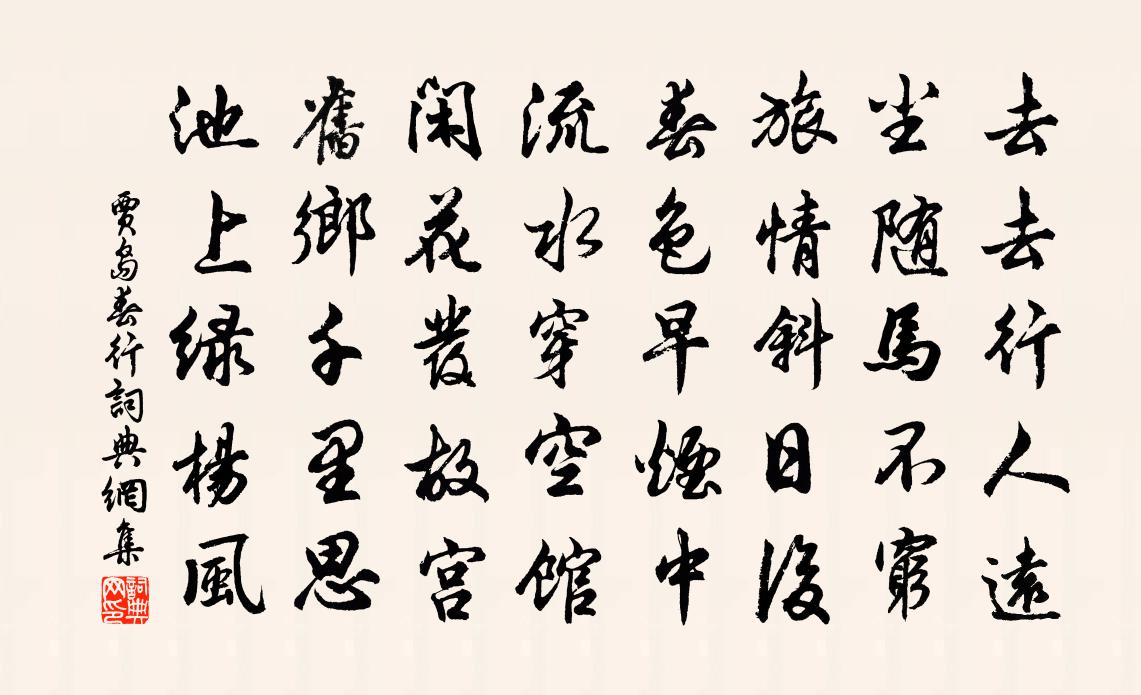 去去行人遠
尘随馬不窮
旅情斜日後
春色早煙中
流水穿空館
閑花發故宫
舊鄉千里思
池上绿楊風
賈島春行詞典網集
詞典网印